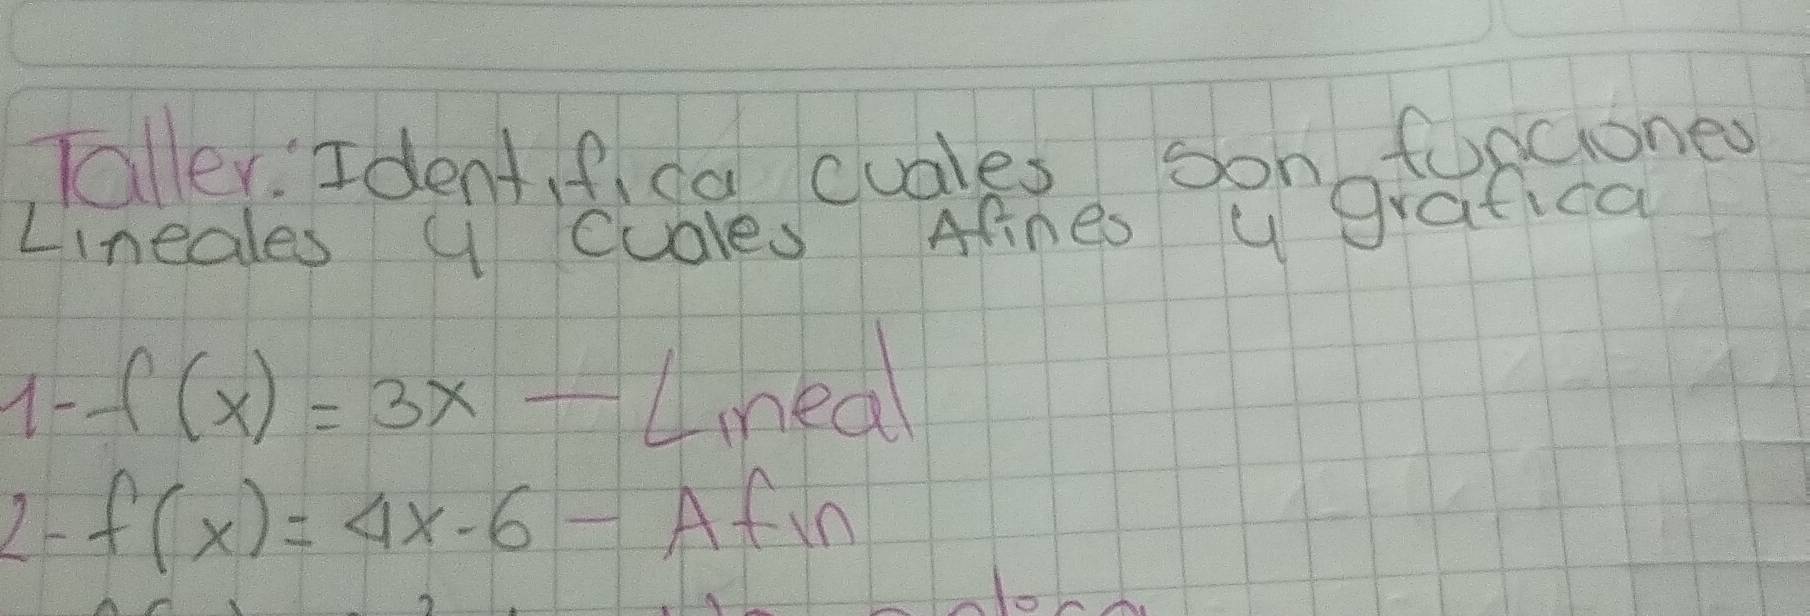 Taller: Identifica cuales son funciones
Lineales y cuales Afines y grafica
1- f(x) = 3x - Lineal
2- f(x) = 4x - 6 - Afin